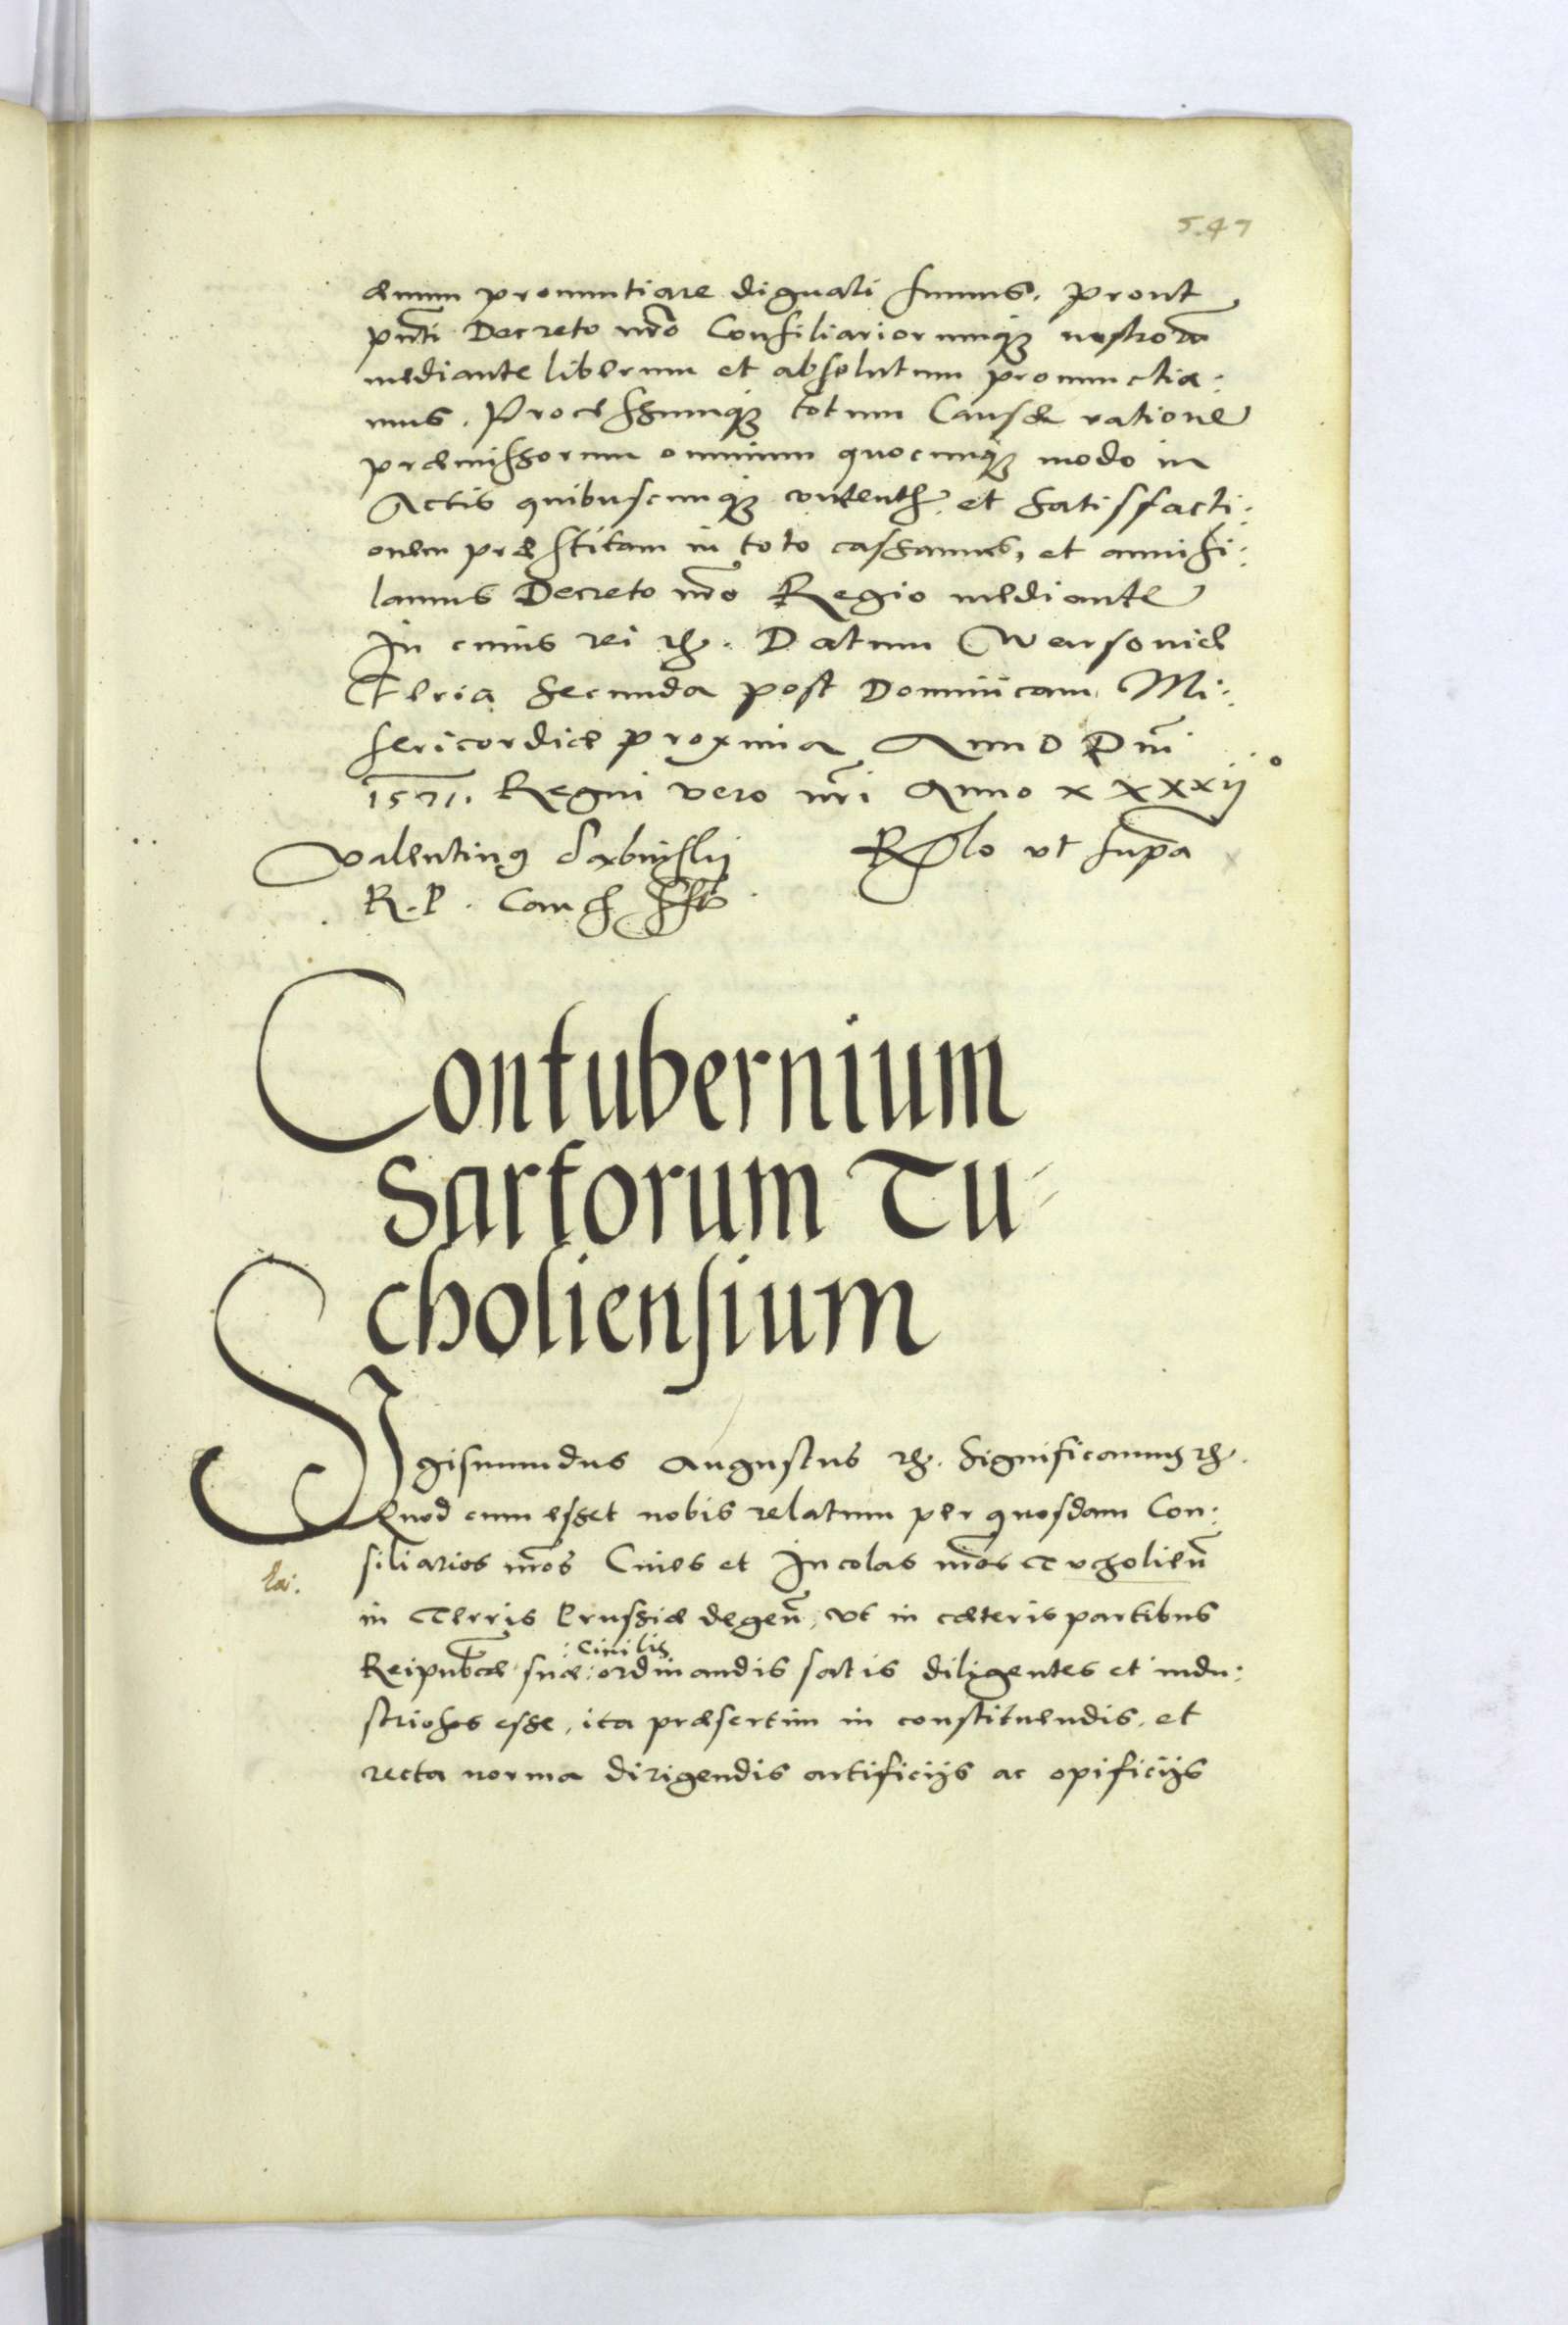 547
æmum pronuntiare dignati sumus. Prout
pn̄ti Decreto nr̄o Consiliariorumq₃ nostrorā
mediante liberum et absolutum pronunctia:
mus. Processumq₃ totum Causæ ratione
præmissorum omnium quocunq₃ modo in
Actis quibuscunq₃ content et satisfacti:
onem præstitam in toto cassamus, et annihi:
lamus Decreto nr̄o Regio mediante
In cuius rei &c. Datum Warsoviæ
Feria secunda post Dominicam Mi:
sericordiæ proxima Anno Dn̄i
1571. Regni vero nr̄i Anno xxxxii°
Valentinus R lo ut supra
R. P. Canc
Contubernium
Sartorum Tu-
choliensium
Sigismundus Augustus &c. Significamus &c.
Quod cum esset nobis relatum per quosdam Con:
siliarios nr̄os Cives et Incolas nr̄os Tucholien̄
la:
in Terris Prussiæ degen̄, ut in cæteris partibus
: Civilis
Reipub̄cæ suæ: ordinandis satis diligentes et indu:
striosos esse, ita præsertim in constituendis, et
recta norma dirigendis artificijs ac opificijs